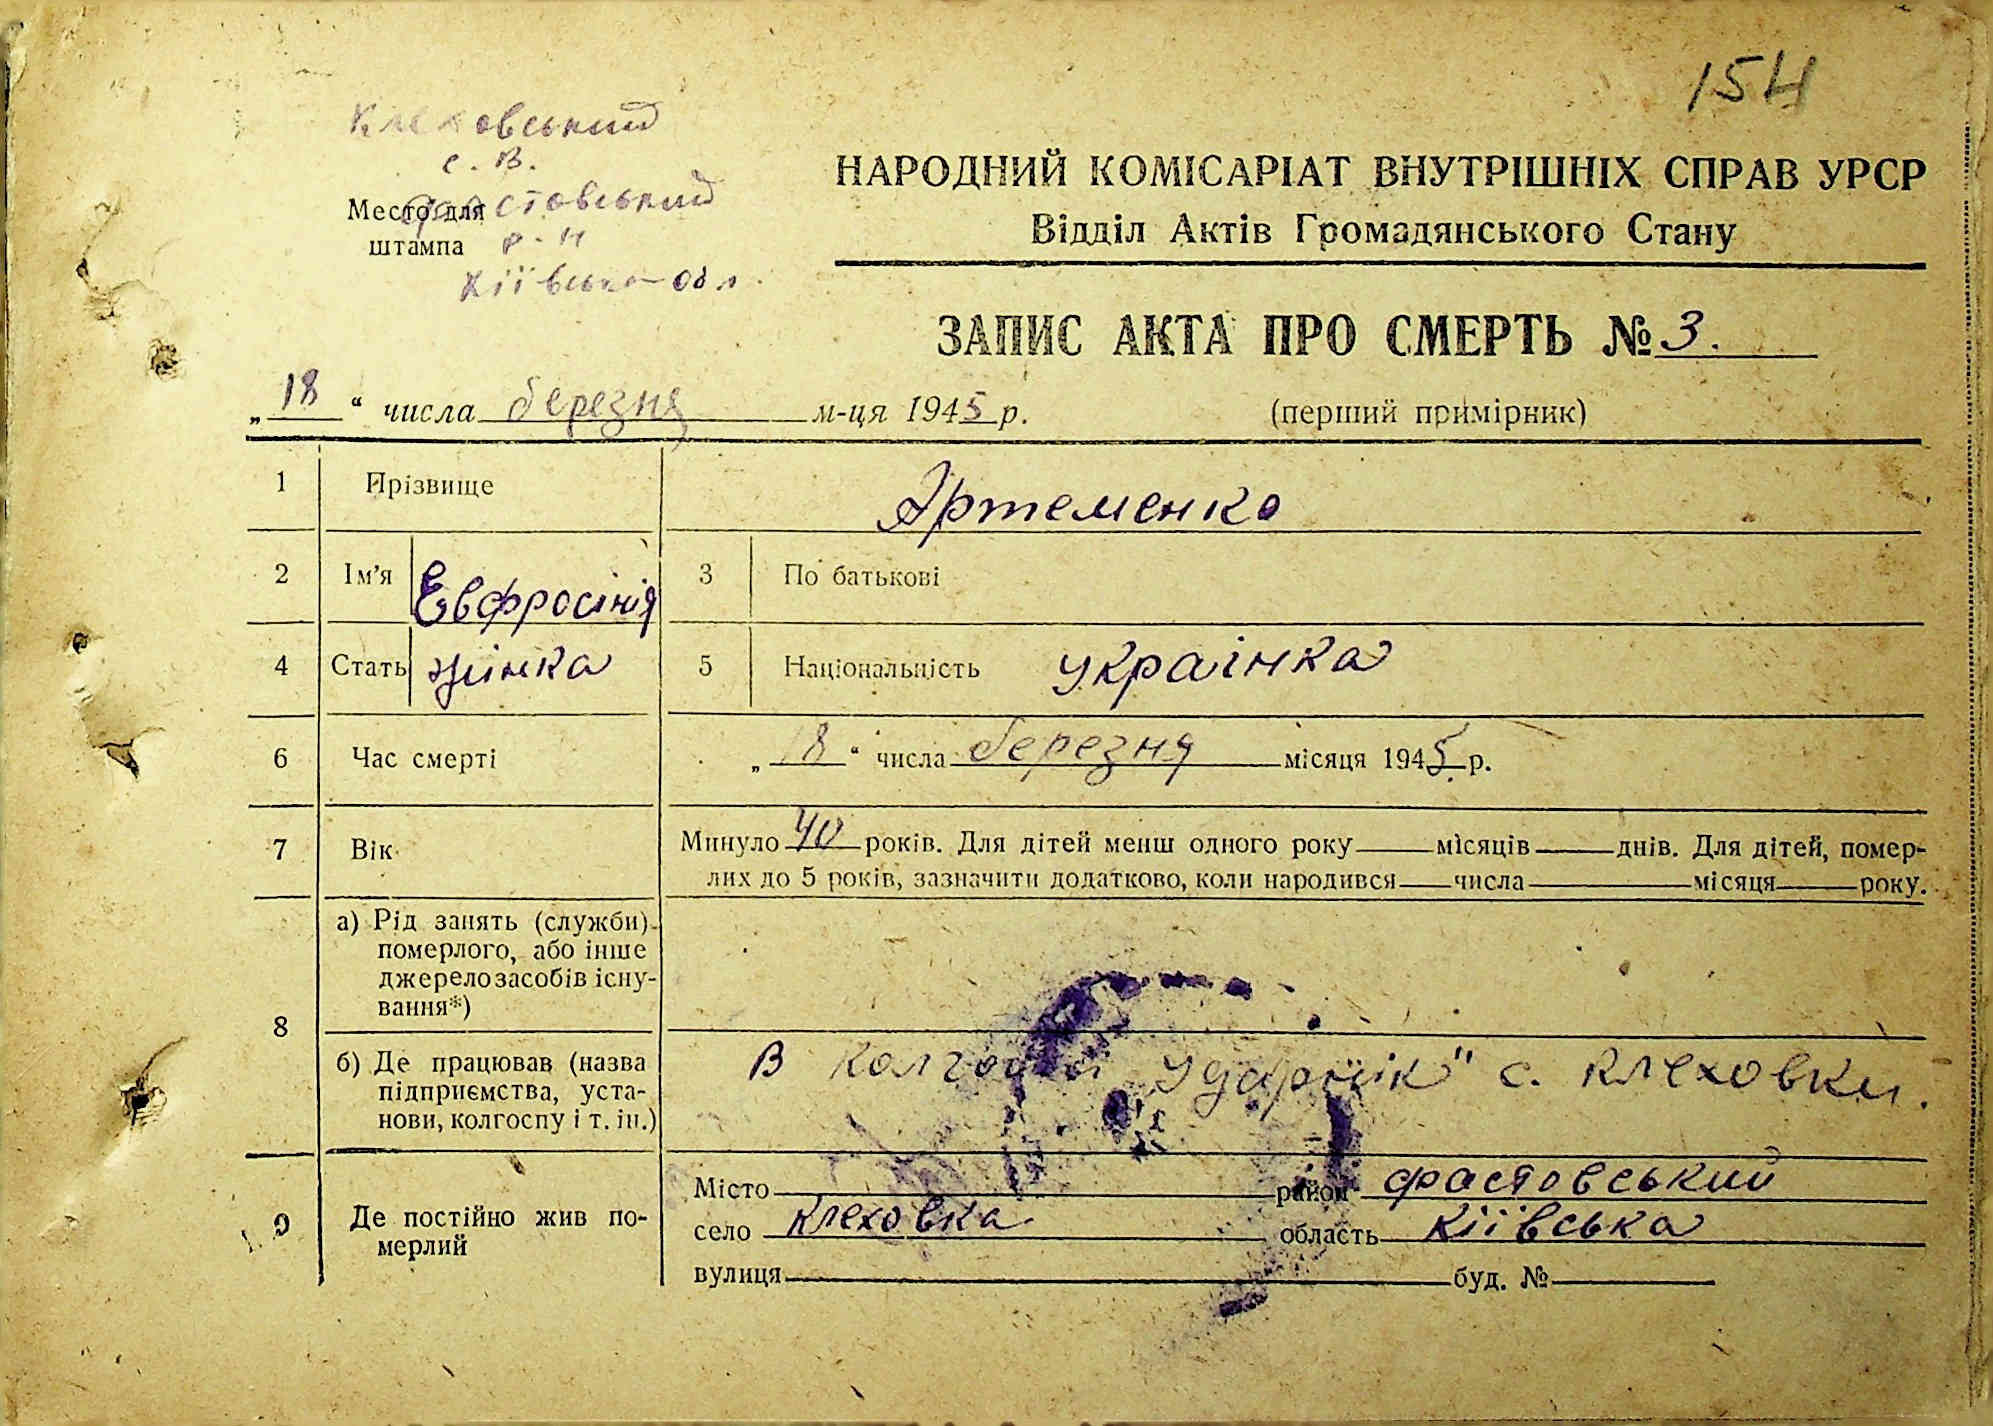 154
Клеховський
с. В.
Фастовський
Место для
штампа р-н
Київська обл.
НАРОДНИЙ КОМІСАРІАТ ВНУТРІШНІХ СПРАВ УРСР
Відділ Актів Громадянського Стану
ЗАПИС АКТА ПРО СМЕРТЬ № 3.
„18“ числа березня м-ця 1945 р. (перший примірник)
1 Прізвище Артеменко
2 Ім'я Евфросінія 3 По батькові
4 Стать жінка 5 Національність українка
6 Час смерті „18“ числа березня місяця 1945 р.
7 Вік Минуло 40 років. Для дітей менш одного року місяців днів. Для дітей, помер-
лих до 5 років, зазначити додатково, коли народився числа місяця року.
8 а) Рід занять (служби)
померлого, або інше
джерело засобів існу-
вання*)
б) Де працював (назва
підприємства, уста-
нови, колгоспу і т. ін.)
В колгоспі „Ударнік" с. Клеховки.
9 Де постійно жив по-
мерлий
Місто район фастовський
село Клеховка область Київська
вулиця буд. №